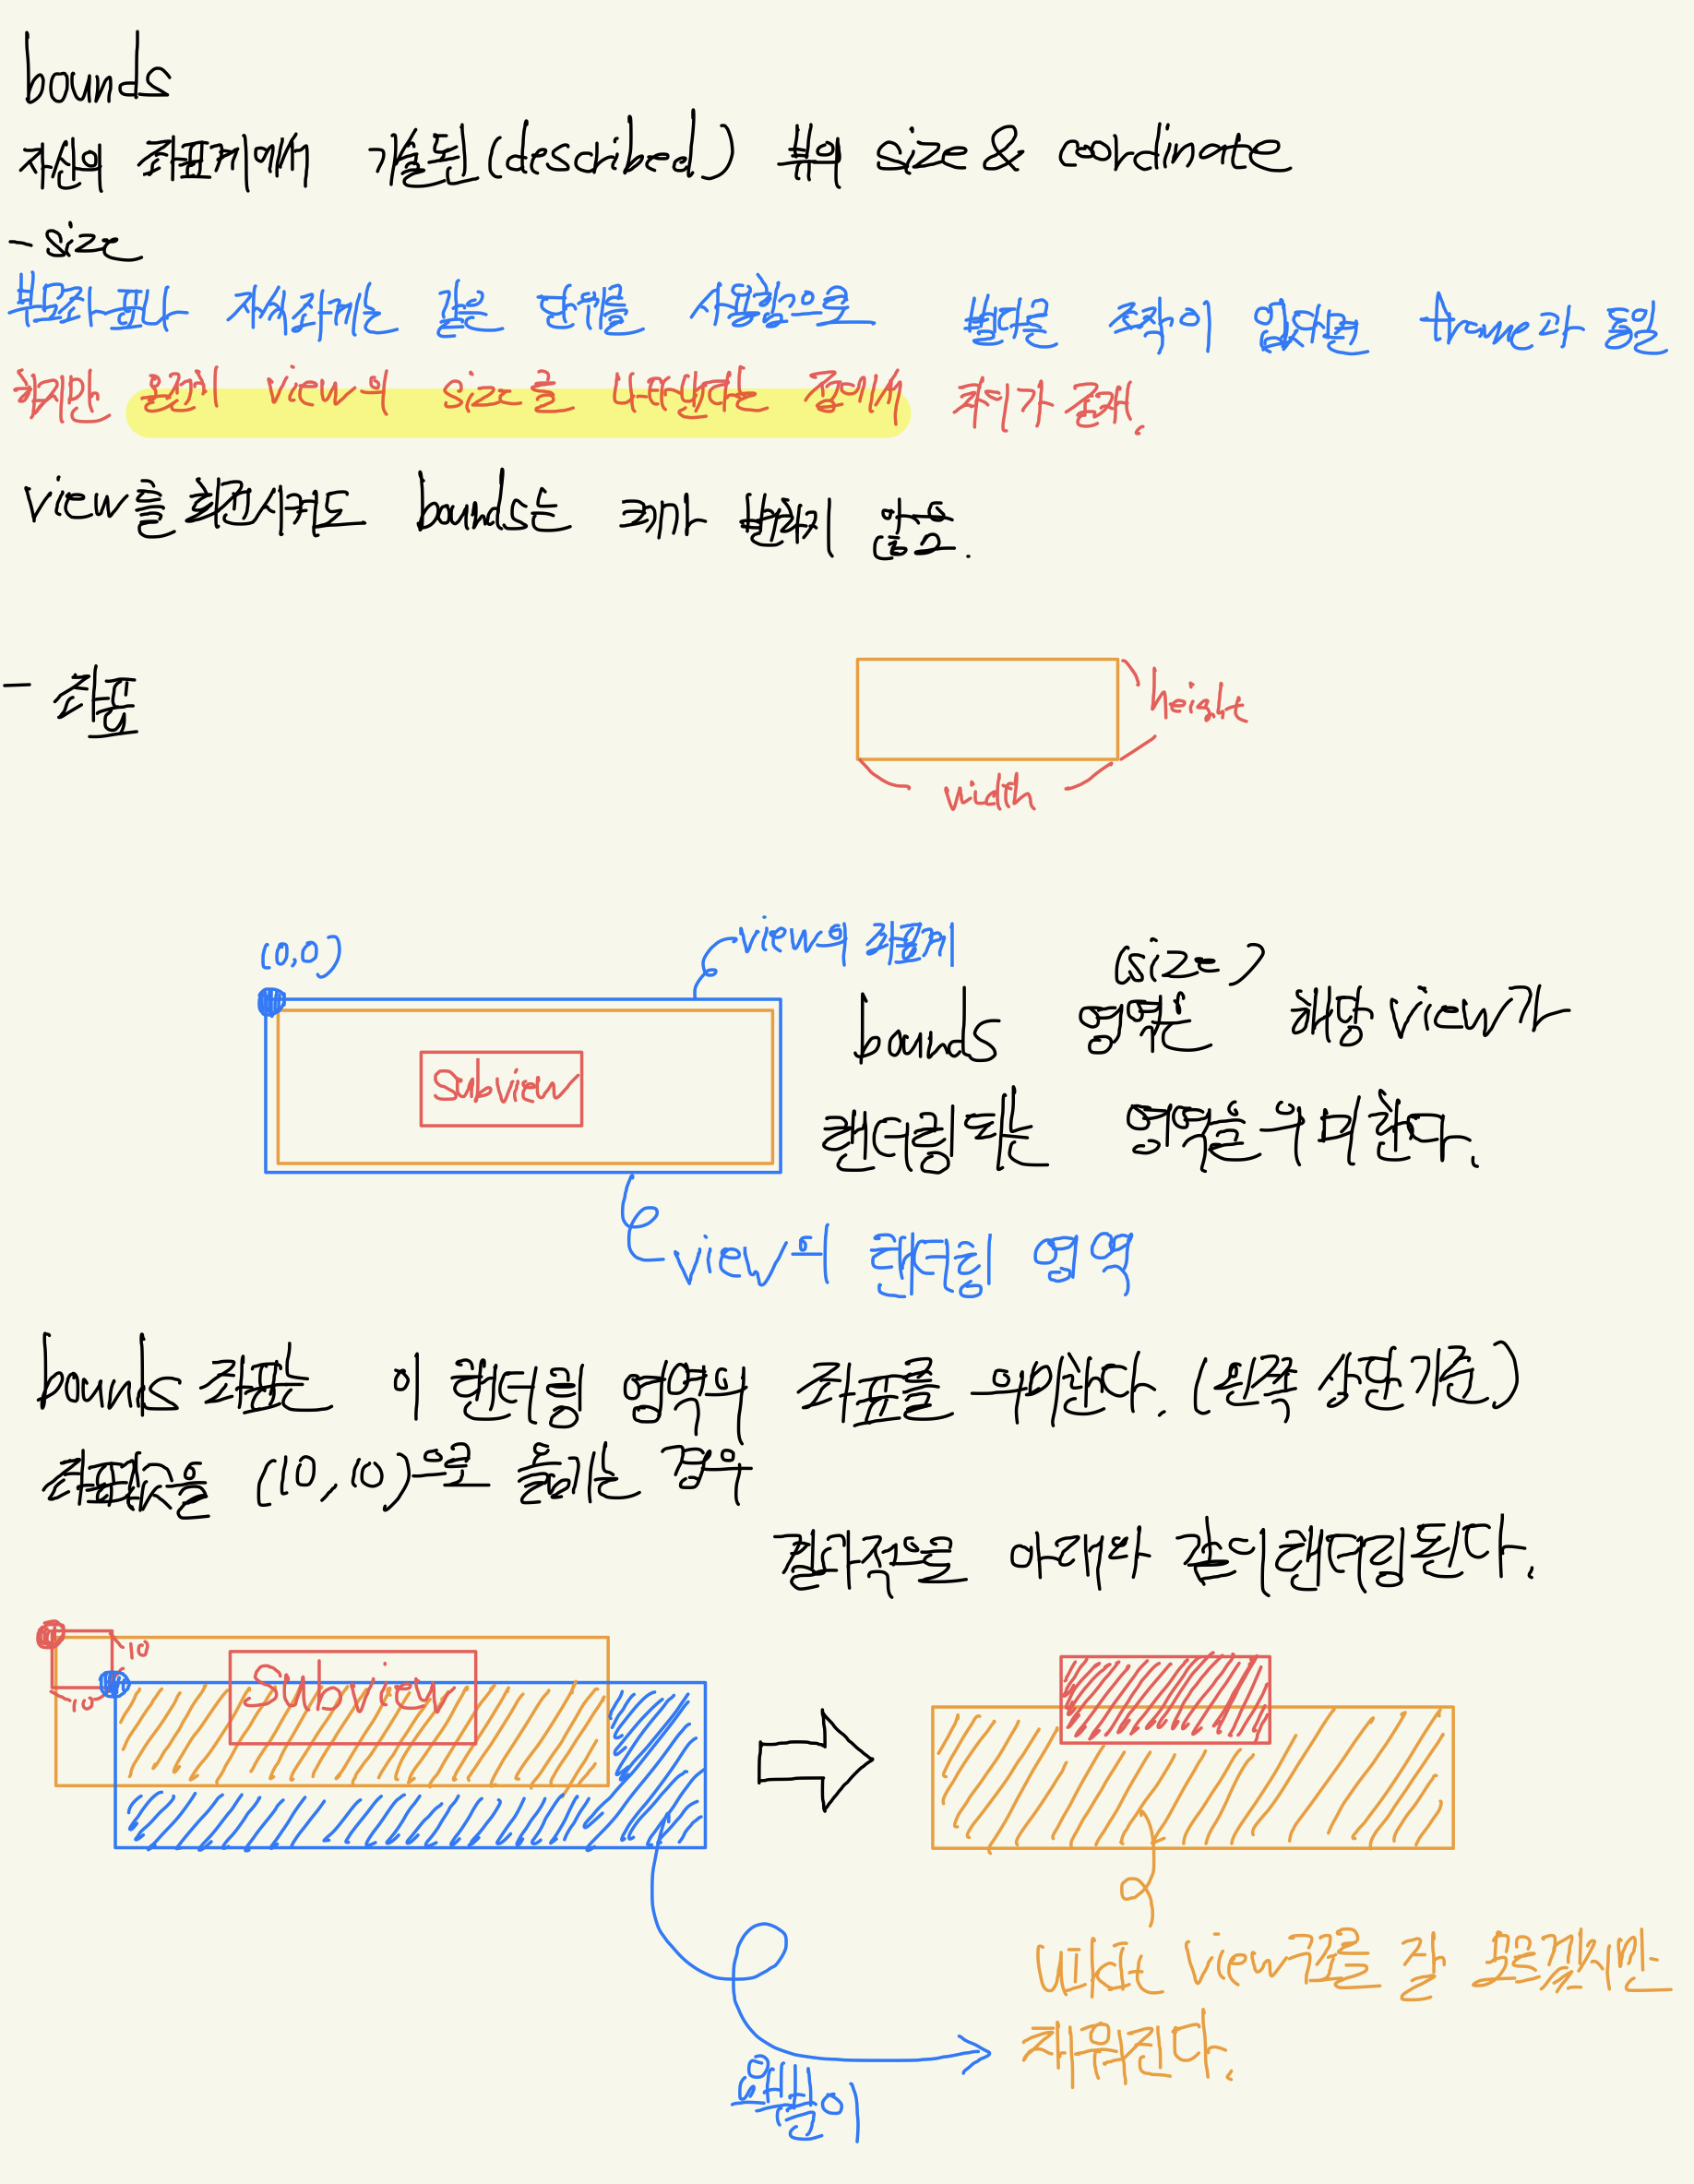 bounds
자신의 좌표계에서 기술된(described) 뷰의 size & coordinate
- size
부모좌표나 자식좌계는 같은 단위를 사용함으로 별다른 조작이 없다면 frame과 동일
하지만 온전히 view의 size를 나타낸다는 점에서 차이가 존재.
view를 회전시켜도 bounds는 크기가 변하지 않음.
- 좌표
height
width
(0,0)
view의 좌표계
Subview
(size)
bounds 영역은 해당 view가
랜더링되는 영역을 의미한다.
view의 랜더링 영역
bounds 좌표는 이 랜더링 영역의 좌표를 의미한다. (왼쪽 상단기준)
좌표값을 (10,10)으로 옮기는 경우
결과적으론 아래와 같이 랜더링된다.
10
10
Subview
UIkit view구조를 잘 모르겠지만
채워진다.